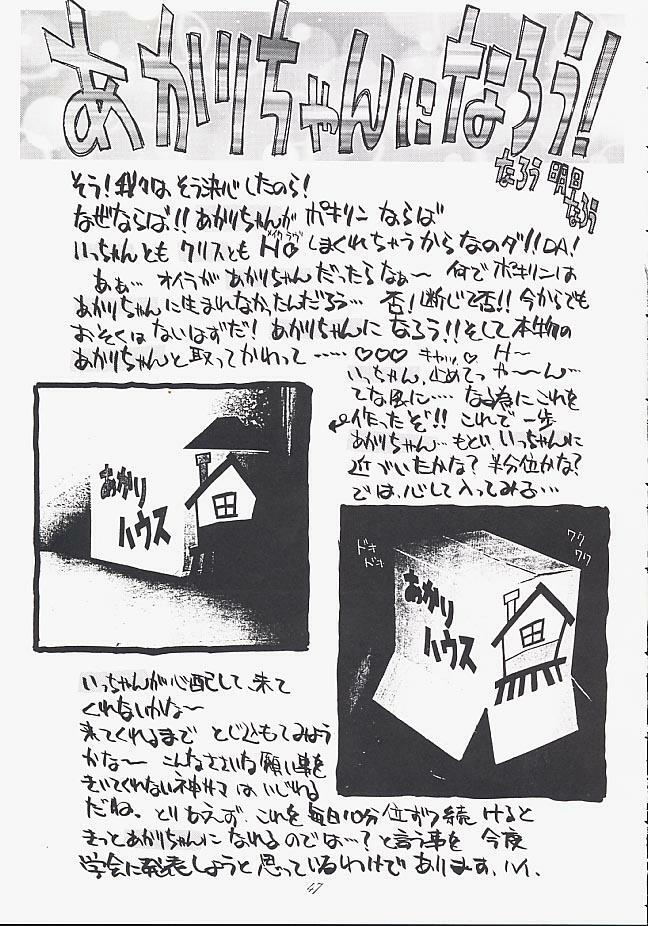 あかりちゃんになろう!
なろう 明日
なろう
そう!我々は、そう決心したのら!
なぜならば!!あかりちゃんが ポキリン ならば
いっちゃんとも クリスとも HO しまくれちゃうからなのダ//DA!
あぁ… オイラが あかりちゃん だったらなぁ〜 何で ポキリンは
あかりちゃんに生まれなかったんだろう… 否!断じて否!!今からでも
おそくは ないはずだ! あかりちゃんに なろう!!そして本物の
あかりちゃんと 取ってかわって ‥‥‥ ♡♡♡ キャッ。♡ H〜
いっちゃん、止めてっ ゃ〜ん…
てな風に‥‥ なる為にこれを
作ったぞ!! これで一歩
あかりちゃん… もとい いっちゃんに
近づいたかな? 半分位かな?
では、心して入ってみる…
あかり
ハウス
ドキ
ドキ
ワク
ワク
あかり
ハウス
いっちゃんが心配して、来て
くれないかな〜
来てくれるまで とじ込もてみよう
かな〜 こんなささいな願い事を
きいてくれない神サマ は、いじわる
だね。 とりあえず、これを 毎日10分 位ずつ続けると
きっとあかりちゃんに なれる のでは…? と言う事を 今度
学会に発表しようと 思っているわけで あります、ハイ、
47